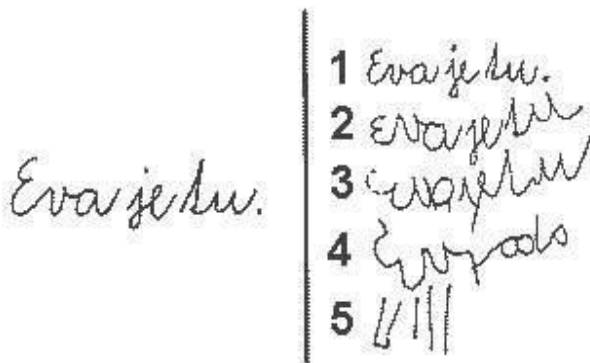 Eva je tu.
1 Eva je tu.
2 Eva je tu
3 Eva je tu
4
5